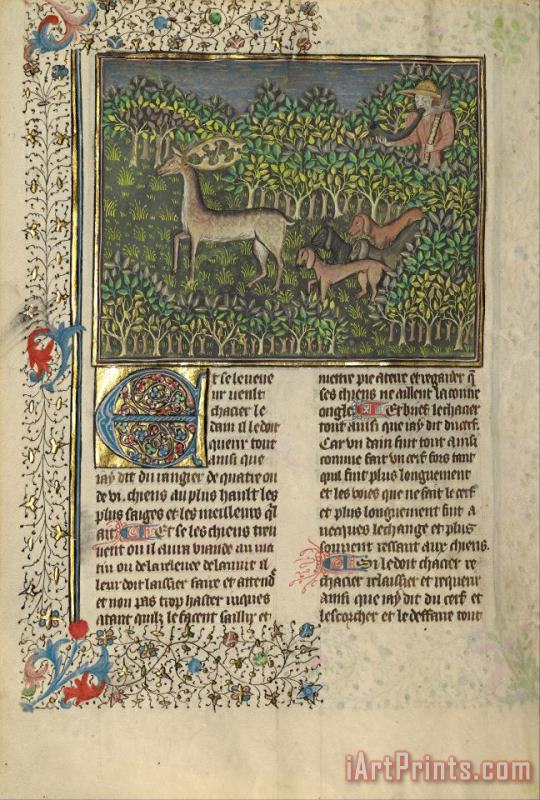 Et se le veneur
ur veult
chacier le
dain il le doit
querir tout
ainsi que
jay dit du rangier de quatre ou
de vi. chiens au plus hault les
plus saiges et les meilleurs ql
ait Et se les chiens treu
vent ou il aura viande au ma
tin ou de la relevee de la nuit il
leur doit laissier faire et attend
et non pas trop haster jusques
atant quilz le facent saillir et
mettre pie a terre et regarder q̄
ses chiens ne aillent la contre
ongle Et brief le chacier
tout ainsi que jay dit du cerf.
Car un dain fuit tout ainsi
comme fait un cerf fors tant
quil fuit plus longuement
et les voies que ne fait le cerf
et plus longuement fuit a
necques le change et plus
souvent ressant aux chiens.
Si le doit chacier re
chacier relaissier et requerir
ainsi que jay dit du cerf et
lescorcher et le deffaire tout
iArtPrints.com